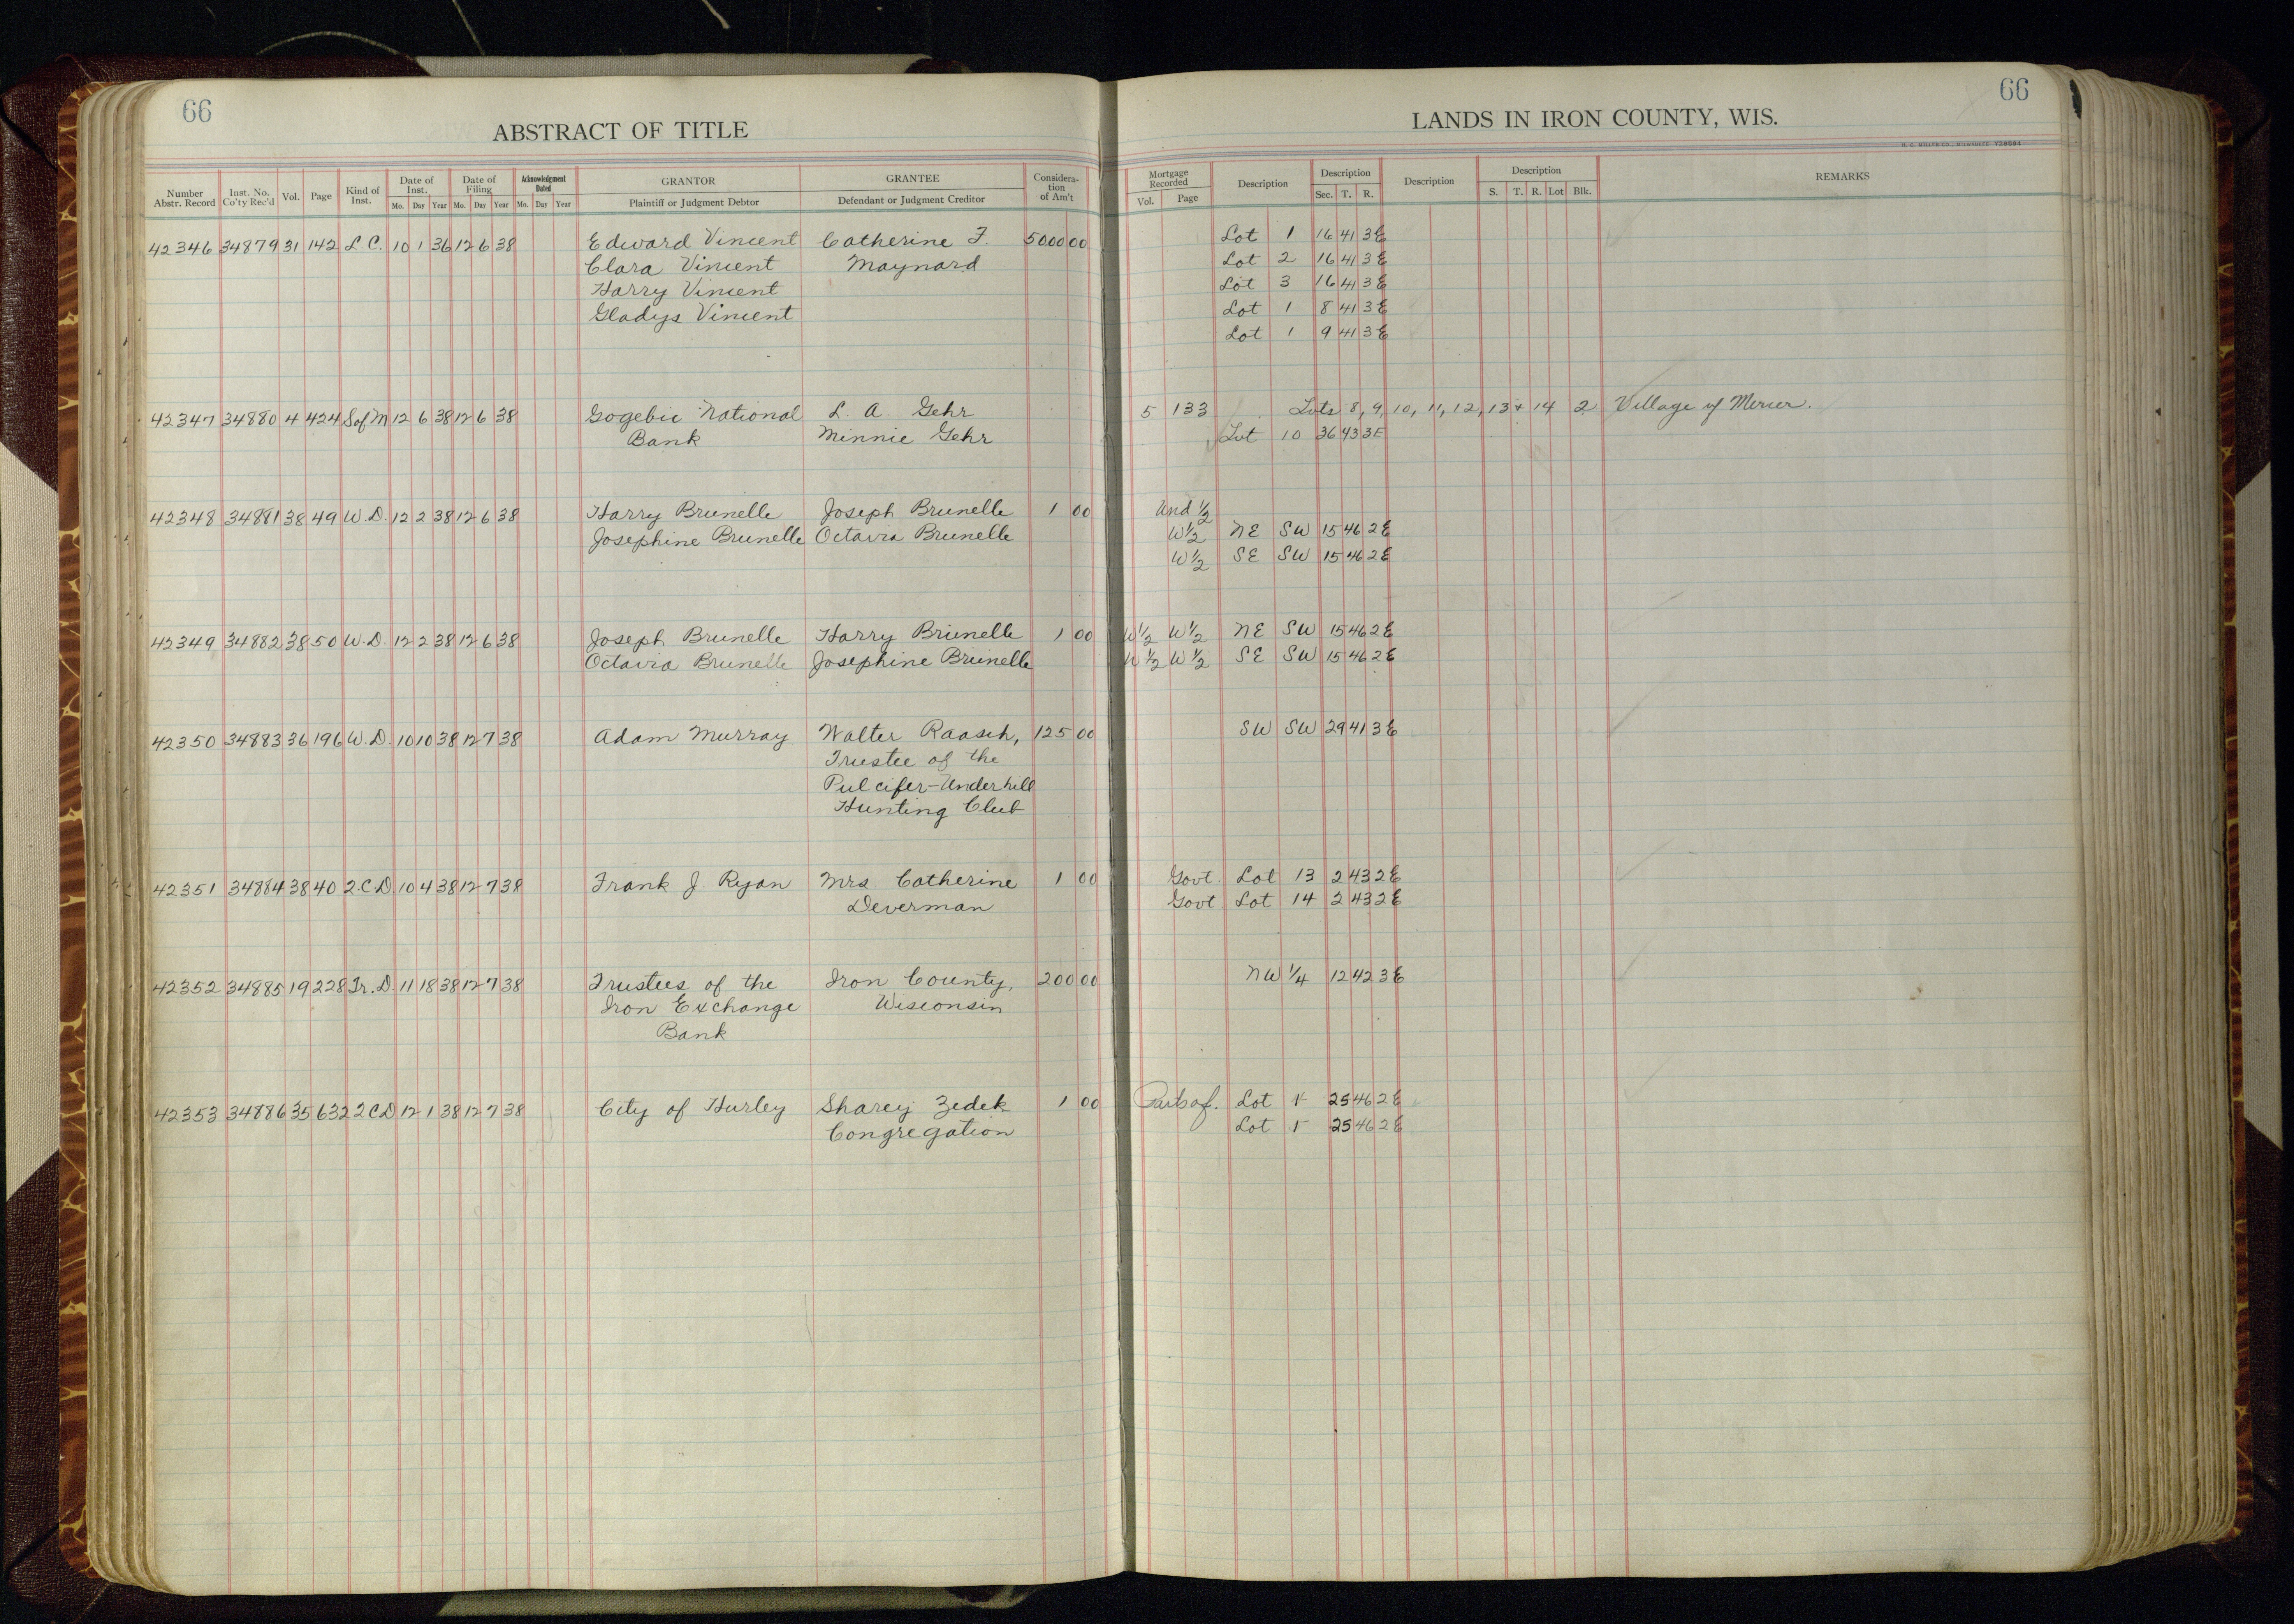 66
ABSTRACT OF TITLE
Number Abstr. Record Inst. No. Co'ty Rec'd Vol. Page Kind of Inst. Date of Inst. Mo. Day Year Date of Filing Mo. Day Year Acknowledgment Dated Mo. Day Year GRANTOR Plaintiff or Judgment Debtor GRANTEE Defendant or Judgment Creditor Considera-tion of Am't
42346 34879 31 142 L.C. 10 1 36 12 6 38 Edward Vincent Catherine F. 5000 00
Clara Vincent Maynard
Harry Vincent
Gladys Vincent
42347 34880 4 424 S of M 12 6 38 12 6 38 Gogebic National L. A. Gehr
Bank Minnie Gehr
42348 34881 38 49 W.D. 12 2 38 12 6 38 Harry Brunelle Joseph Brunelle 1 00
Josephine Brunelle Octavia Brunelle
42349 34882 38 50 W.D. 12 2 38 12 6 38 Joseph Brunelle Harry Brunelle 1 00
Octavia Brunelle Josephine Brunelle
42350 34883 36 196 W.D. 10 10 38 12 7 38 Adam Murray Walter Raasch, 125 00
Trustee of the
Pulcifer-Underhill
Hunting Club
42351 34884 38 40 2.C.D. 10 4 38 12 7 38 Frank J. Ryan Mrs. Catherine 1 00
Deverman
42352 34885 19 228 Tr. D. 11 18 38 12 7 38 Trustees of the Iron County, 200 00
Iron Exchange Wisconsin
Bank
42353 34886 35 632 2CD 12 1 38 12 7 38 City of Hurley Sharey Zedek 1 00
Congregation
66
LANDS IN IRON COUNTY, WIS.
H. C. MILLER CO., MILWAUKEE
Mortgage Recorded Vol. Page Description Description Sec. T. R. Description Description S. T. R. Lot Blk. REMARKS
Lot 1 16 41 3E
Lot 2 16 41 3E
Lot 3 16 41 3E
Lot 1 8 41 3E
Lot 1 9 41 3E
5 133 Lots 8, 9, 10, 11, 12, 13 + 14 2 Village of Mercer.
Lot 10 36 43 3E
Und 1/2
W 1/2 NE SW 15 46 2E
W 1/2 SE SW 15 46 2E
W 1/2 W 1/2 NE SW 15 46 2E
W 1/2 W 1/2 SE SW 15 46 2E
SW SW 29 41 3E
Govt. Lot 13 2 43 2E
Govt Lot 14 2 43 2E
NW 1/4 12 42 3E
Parts of. Lot 25 46 2E
Lot 25 46 2E